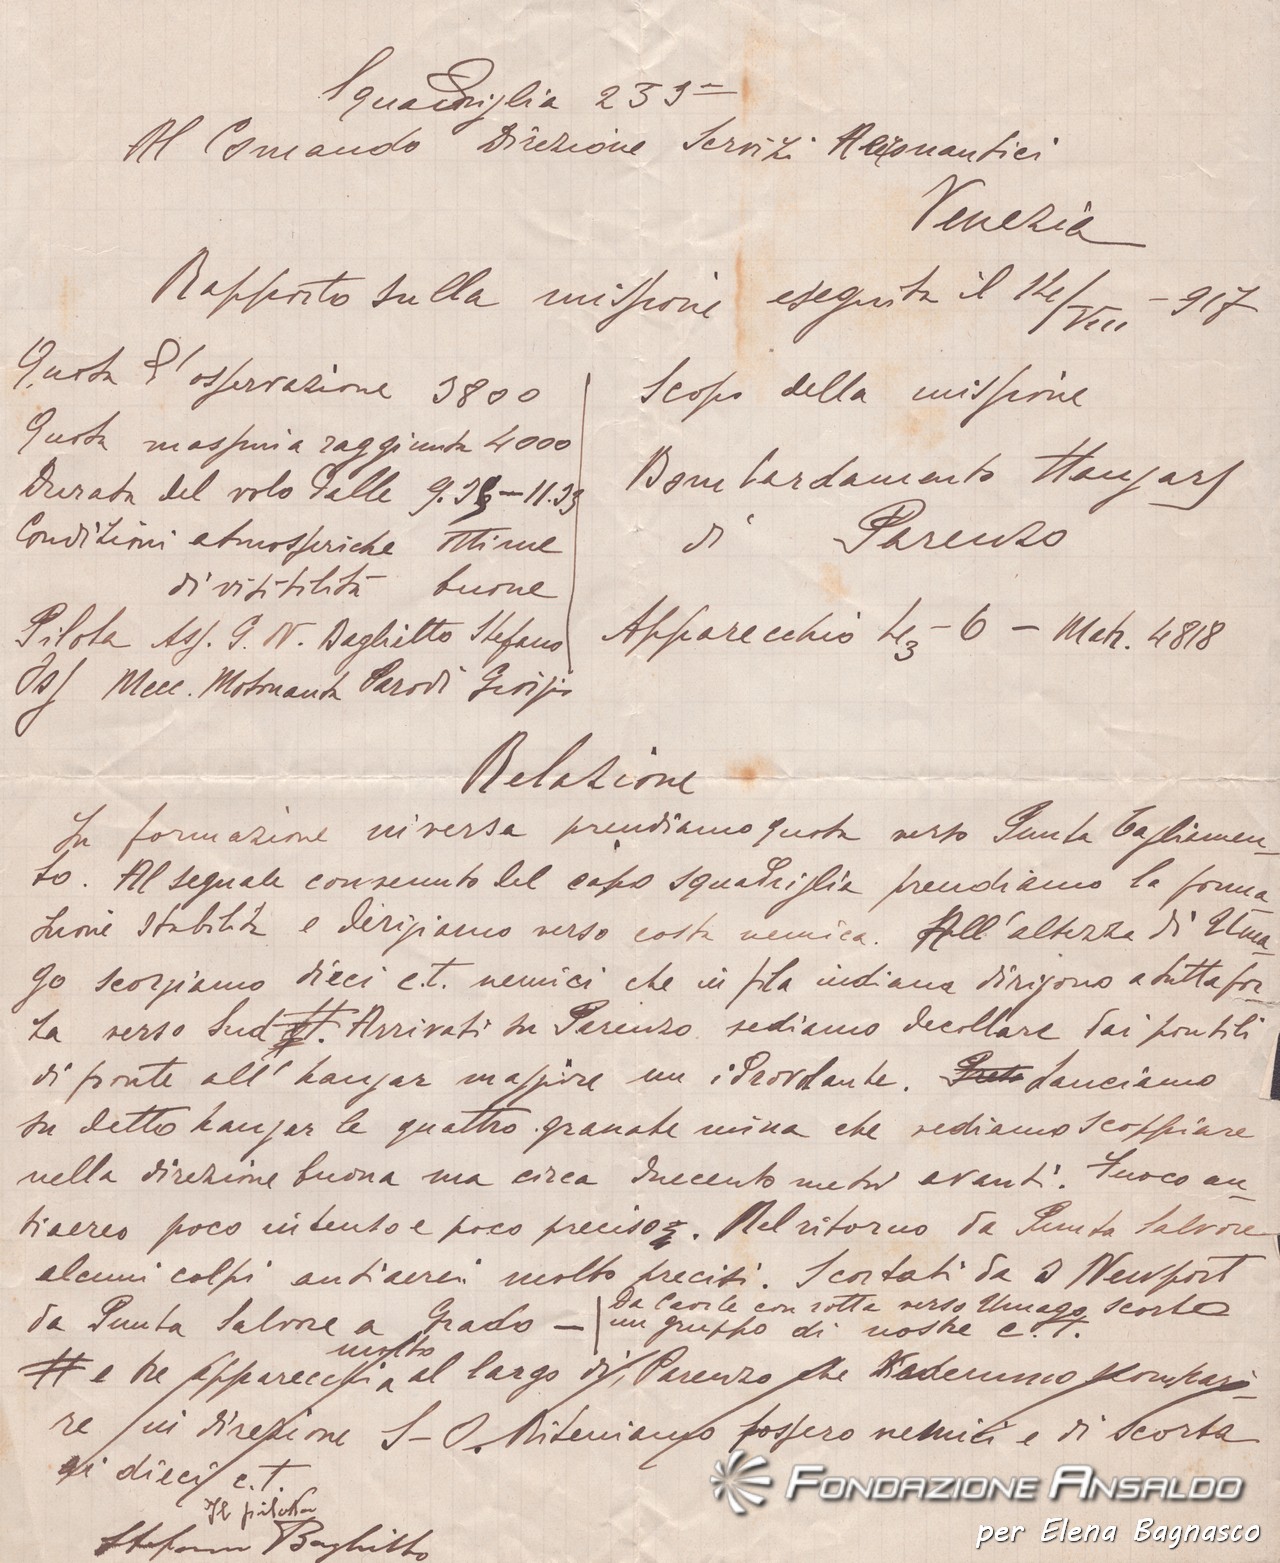 Squadriglia 233ª
Al Comando Direzione Servizi Aeronautici
Venezia
Rapporto sulla missione eseguita il /VIII - 917
Quota d'osservazione 3800
Quota massima raggiunta 4000
Durata del volo dalle 9. - 11.
Condizioni atmosferiche ottime
di visibilità buone
Pilota Asp. G. N. Baghitto Stefano
Oss Mecc. Motonauta Parodi Giorgio
Scopo della missione
Bombardamento Hangars
di Parenzo
Apparecchio L3 - 6 - Matr. 4818
Relazione
In formazione inversa prendiamo quota verso Punta Tagliamen-
to. Al segnale convenuto del capo squadriglia prendiamo la forma
zione stabilita e dirigiamo verso costa nemica. All'altezza di Uma
go scorgiamo dieci c.t. nemici che in fila indiana dirigono a tutta for-
za verso Sud. Arrivati su Parenzo vediamo decollare dai pontili
di fronte all'hangar maggiore un idrovolante. Lanciamo
su detto hangar le quattro granate mina che vediamo scoppiare
nella direzione buona ma circa duecento metri avanti. Fuoco an-
tiaereo poco intenso e poco preciso. Nel ritorno da Punta Salvore
alcuni colpi antiaerei molto precisi. Scortati da Newport
da Punta Salvore a Grado -
Da Caorle con rotta verso Umago scorto
un gruppo di nostre c.t.
# e tre apparecchi molto al largo di Parenzo che vedemmo scompari-
re in direzione S-O. Riteniamo fossero nemici e di scorta
ai dieci c.t.
Il pilota
Stefano Baghitto
FONDAZIONE ANSALDO
per Elena Bagnasco